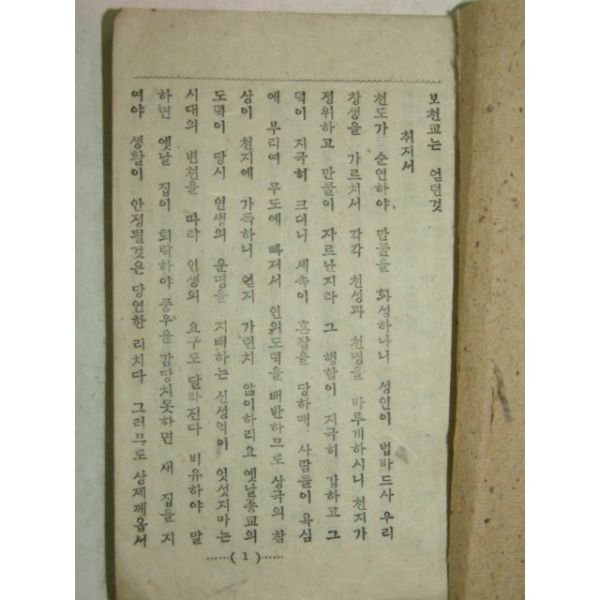 보천교는 엇던것
취지서
천도가 순연하야 만물을 화성하나니 성인이 법바드사 우리
창생을 가르치서 각각 천성과 천명을 바루게하시니 천지가
정위하고 만물이 자르난지라 그 행함이 지극히 강하고 그
덕이 지극히 크대니 세속이 혼잡을 당하매 사람들이 욕심
에 부리여 무도에 빠져서 인의도덕을 배반하므로 상극의 참
상이 천지에 가득하니 엇지 가련치 않이하리요 옛날종교의
도덕이 당시 인생의 운명을 지배하는 신성역이 잇섯지마는
시대의 변천을 따라 인생의 요구도 달라진다 비유하야 말
하면 옛날 집이 퇴락하야 풍우을 감당치못하면 새 집을 지
여야 생활이 안정될것은 당연한 리치다 그러므로 상제께옵서
……( 1 )……